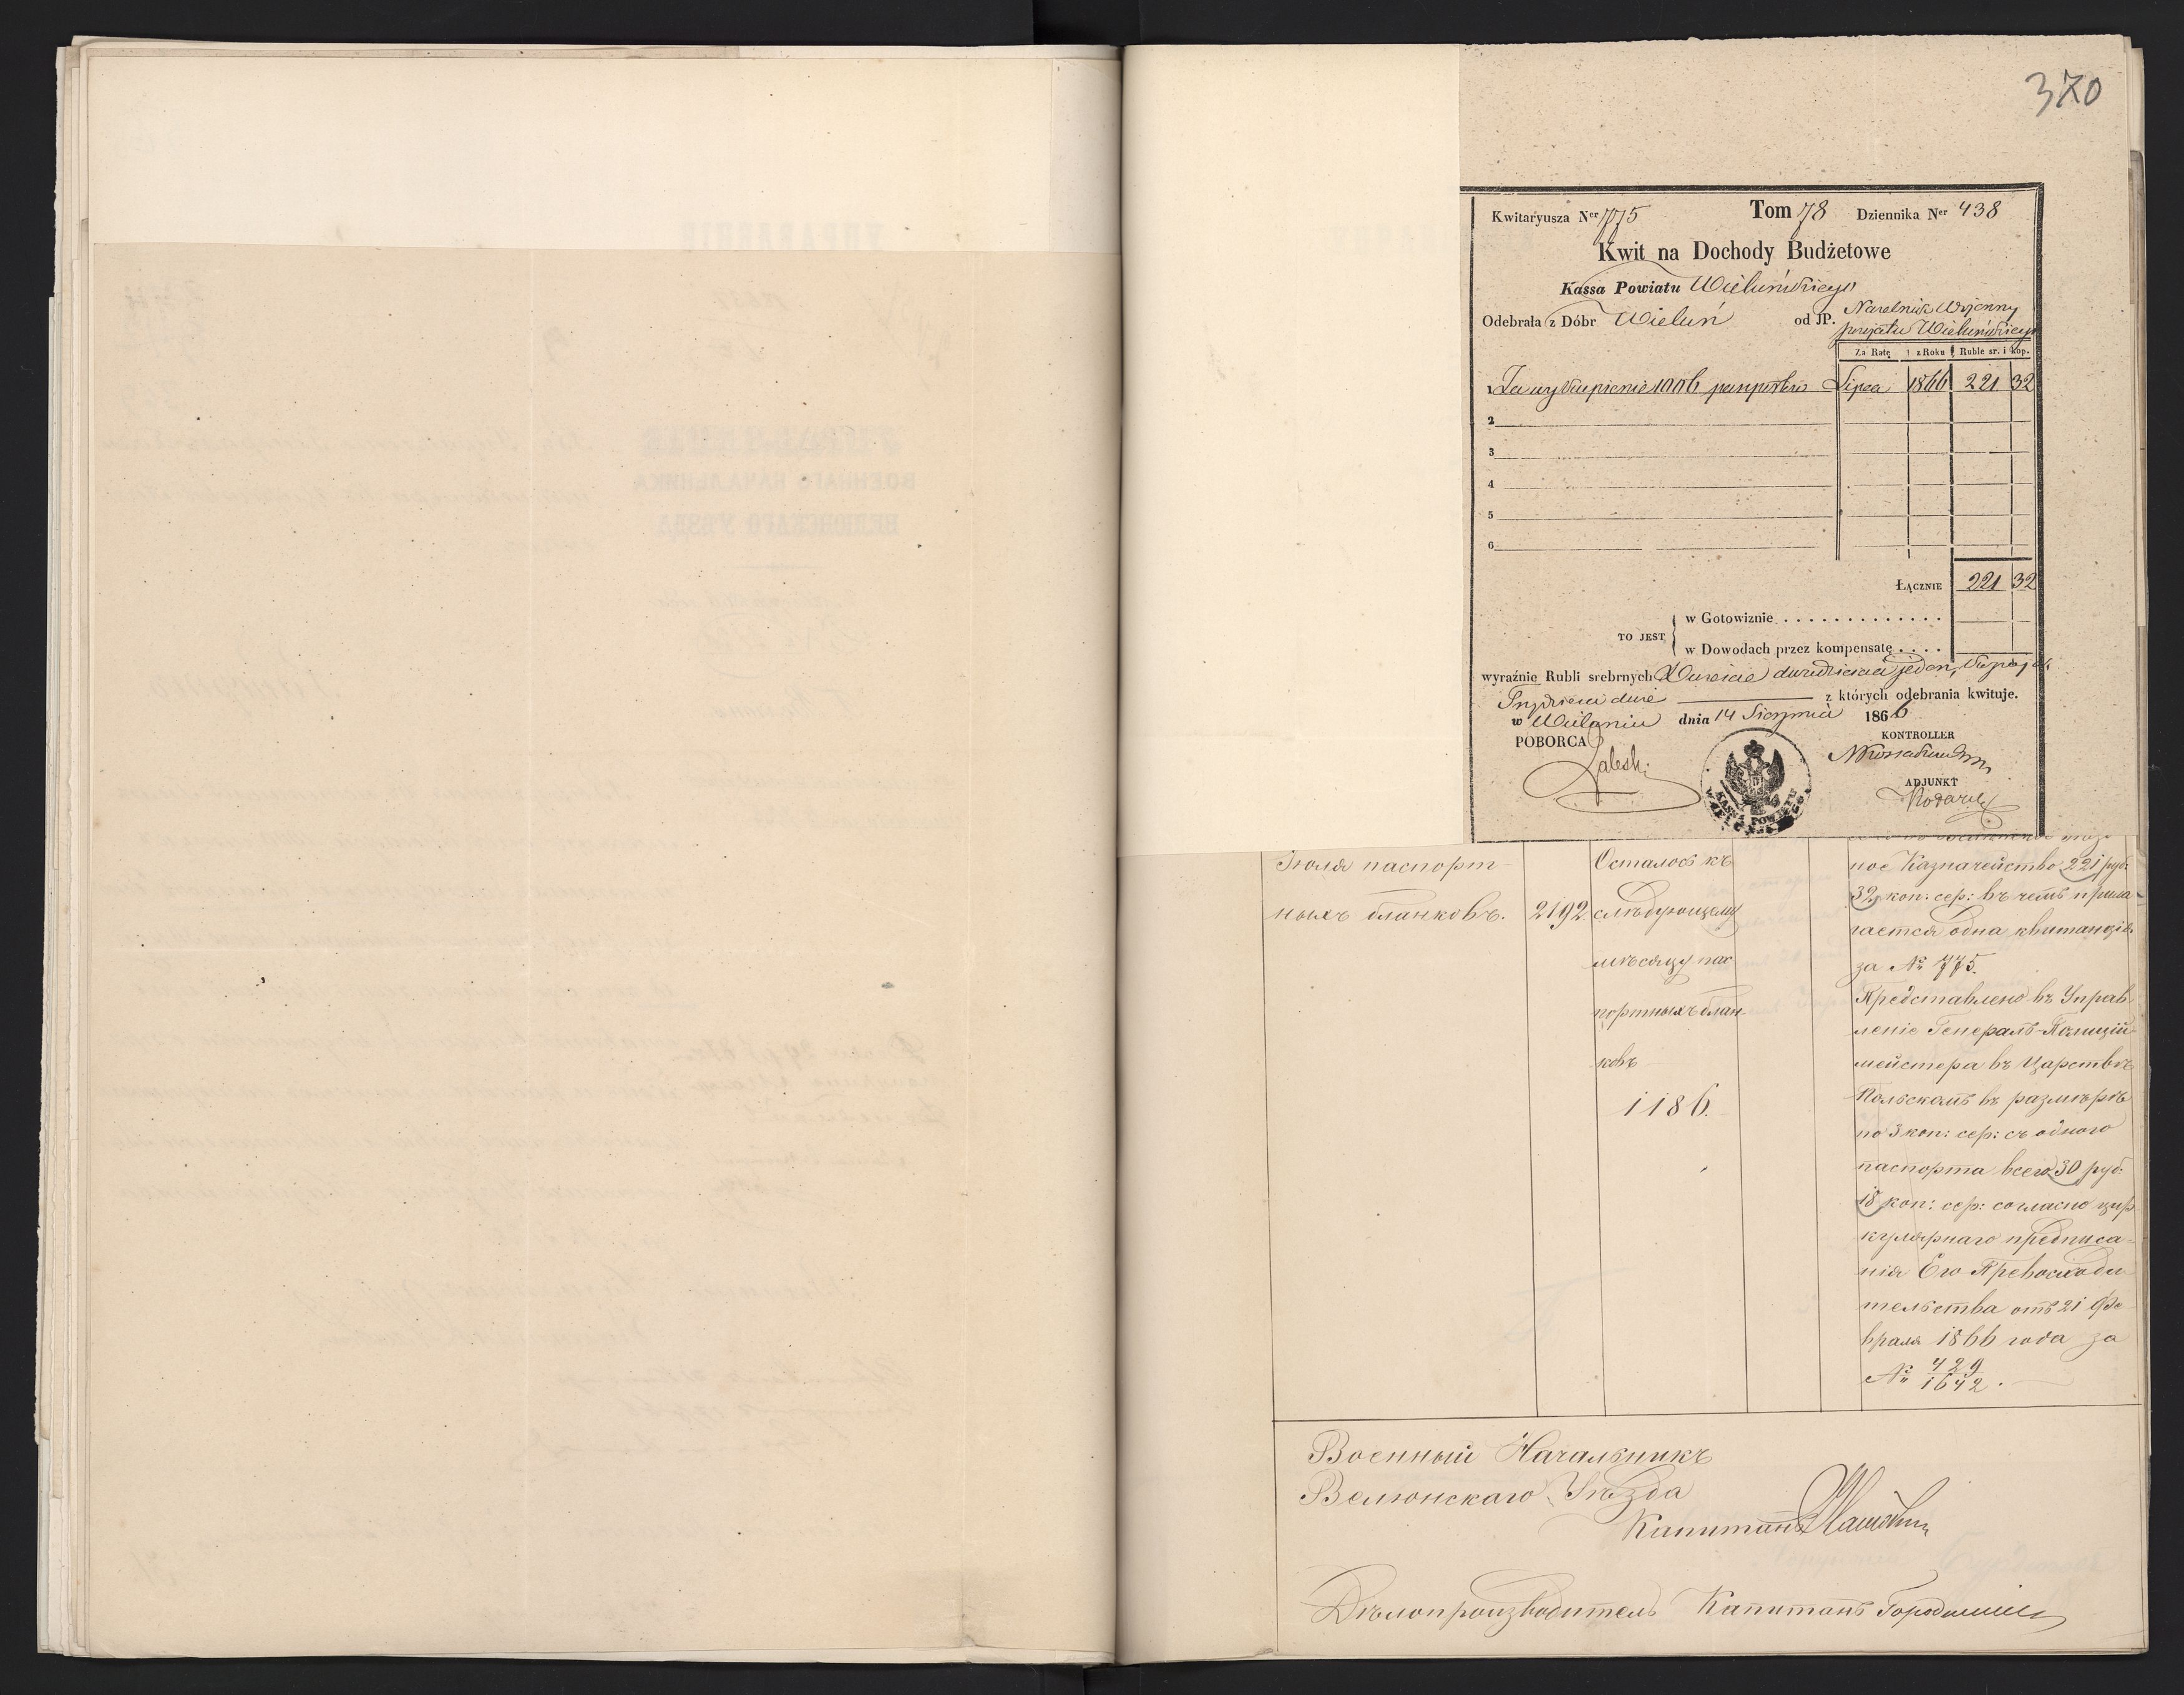 370
Kwitaryusza Ner 775 Tom 78 Dziennika Ner 438
Kwit na Dochody Budżetowe
Kassa Powiatu Wieluńskiego
Odebrała z Dóbr Wieluń od JP. Naczelnik Wojenny
powiatu Wieluńskiego
Za Ratę z Roku Ruble sr. i kop.
1 Za wykupienie 1006 paszportów Lipca 1866 221 32
2
3
4
5
6
Łącznie 221 32
to jest
w Gotowiznie
w Dowodach przez kompensatę
wyraźnie Rubli srebrnych Dwieście dwadzieścia jeden, kopiejek
Trzydzieści dwie z których odebrania kwituje.
w Wieluniu dnia 14 Sierpnia 1866
POBORCA KONTROLLER
Zaleski
ADJUNKT
KASSA POWIATU
Іюля паспорт-
ныхъ бланковъ. 2192.
Осталось къ
слѣдующему
мѣсяцу пас
портныхъ блан
ковъ
1186.
ное Казначейство 221 руб.
32 коп: сер: въ чемъ прила-
гается одна квитанція
за № 775.
Представлено въ Управ
леніе Генералъ-Полицій-
мейстера въ Царствѣ
Польскомъ въ размѣрѣ
по 3 коп: сер: съ одного
паспорта всего 30 руб.
18 коп: сер: согласно цир
кулярнаго предписа-
нія Его Превосходи
тельства отъ 21 Фе
враля 1866 года за
№ 429/1642.
Военный Начальникъ
Велюнскаго Уѣзда
Капитанъ
Дѣлопроизводитель Капитанъ